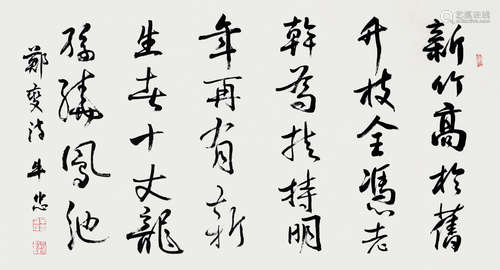 新竹高於舊
竹枝全憑老
幹為扶持明
年再有新
生者十丈龍
孫繞鳳池
鄭燮詩 牛